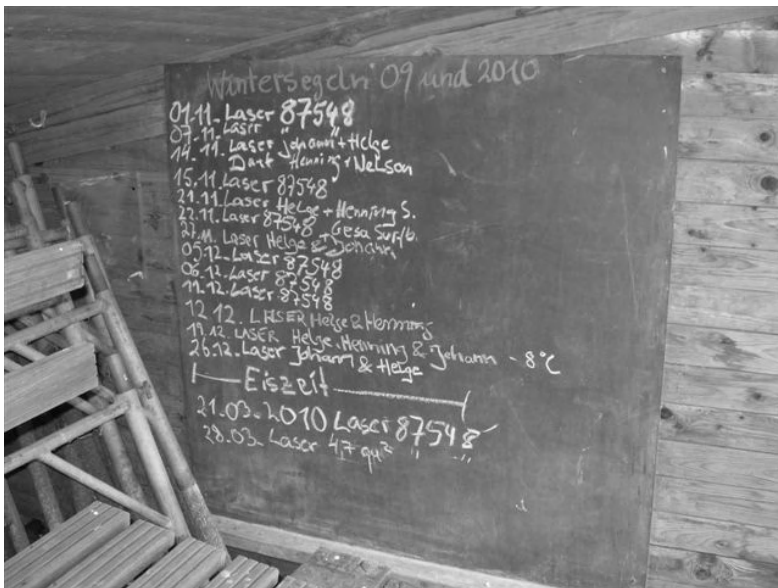 Wintersegeln 09 und 2010
01.11. Laser 87548
07.11. Laser " "
14.11. Laser Johann + Helge
Dart Henning + Nelson
15.11. Laser 87548
21.11. Laser Helge + Henning S.
22.11. Laser 87548 + Gesa Surfb.
27.11. Laser Helge & Johann
05.12. Laser 87548
06.12. Laser 87548
11.12. Laser 87548
12.12. LASER Helge & Henning
19.12. LASER Helge, Henning & Johann - 8°C
26.12. Laser Johann & Helge
Eiszeit
21.03.2010 Laser 87548
28.03. Laser 4,7 qm² " "